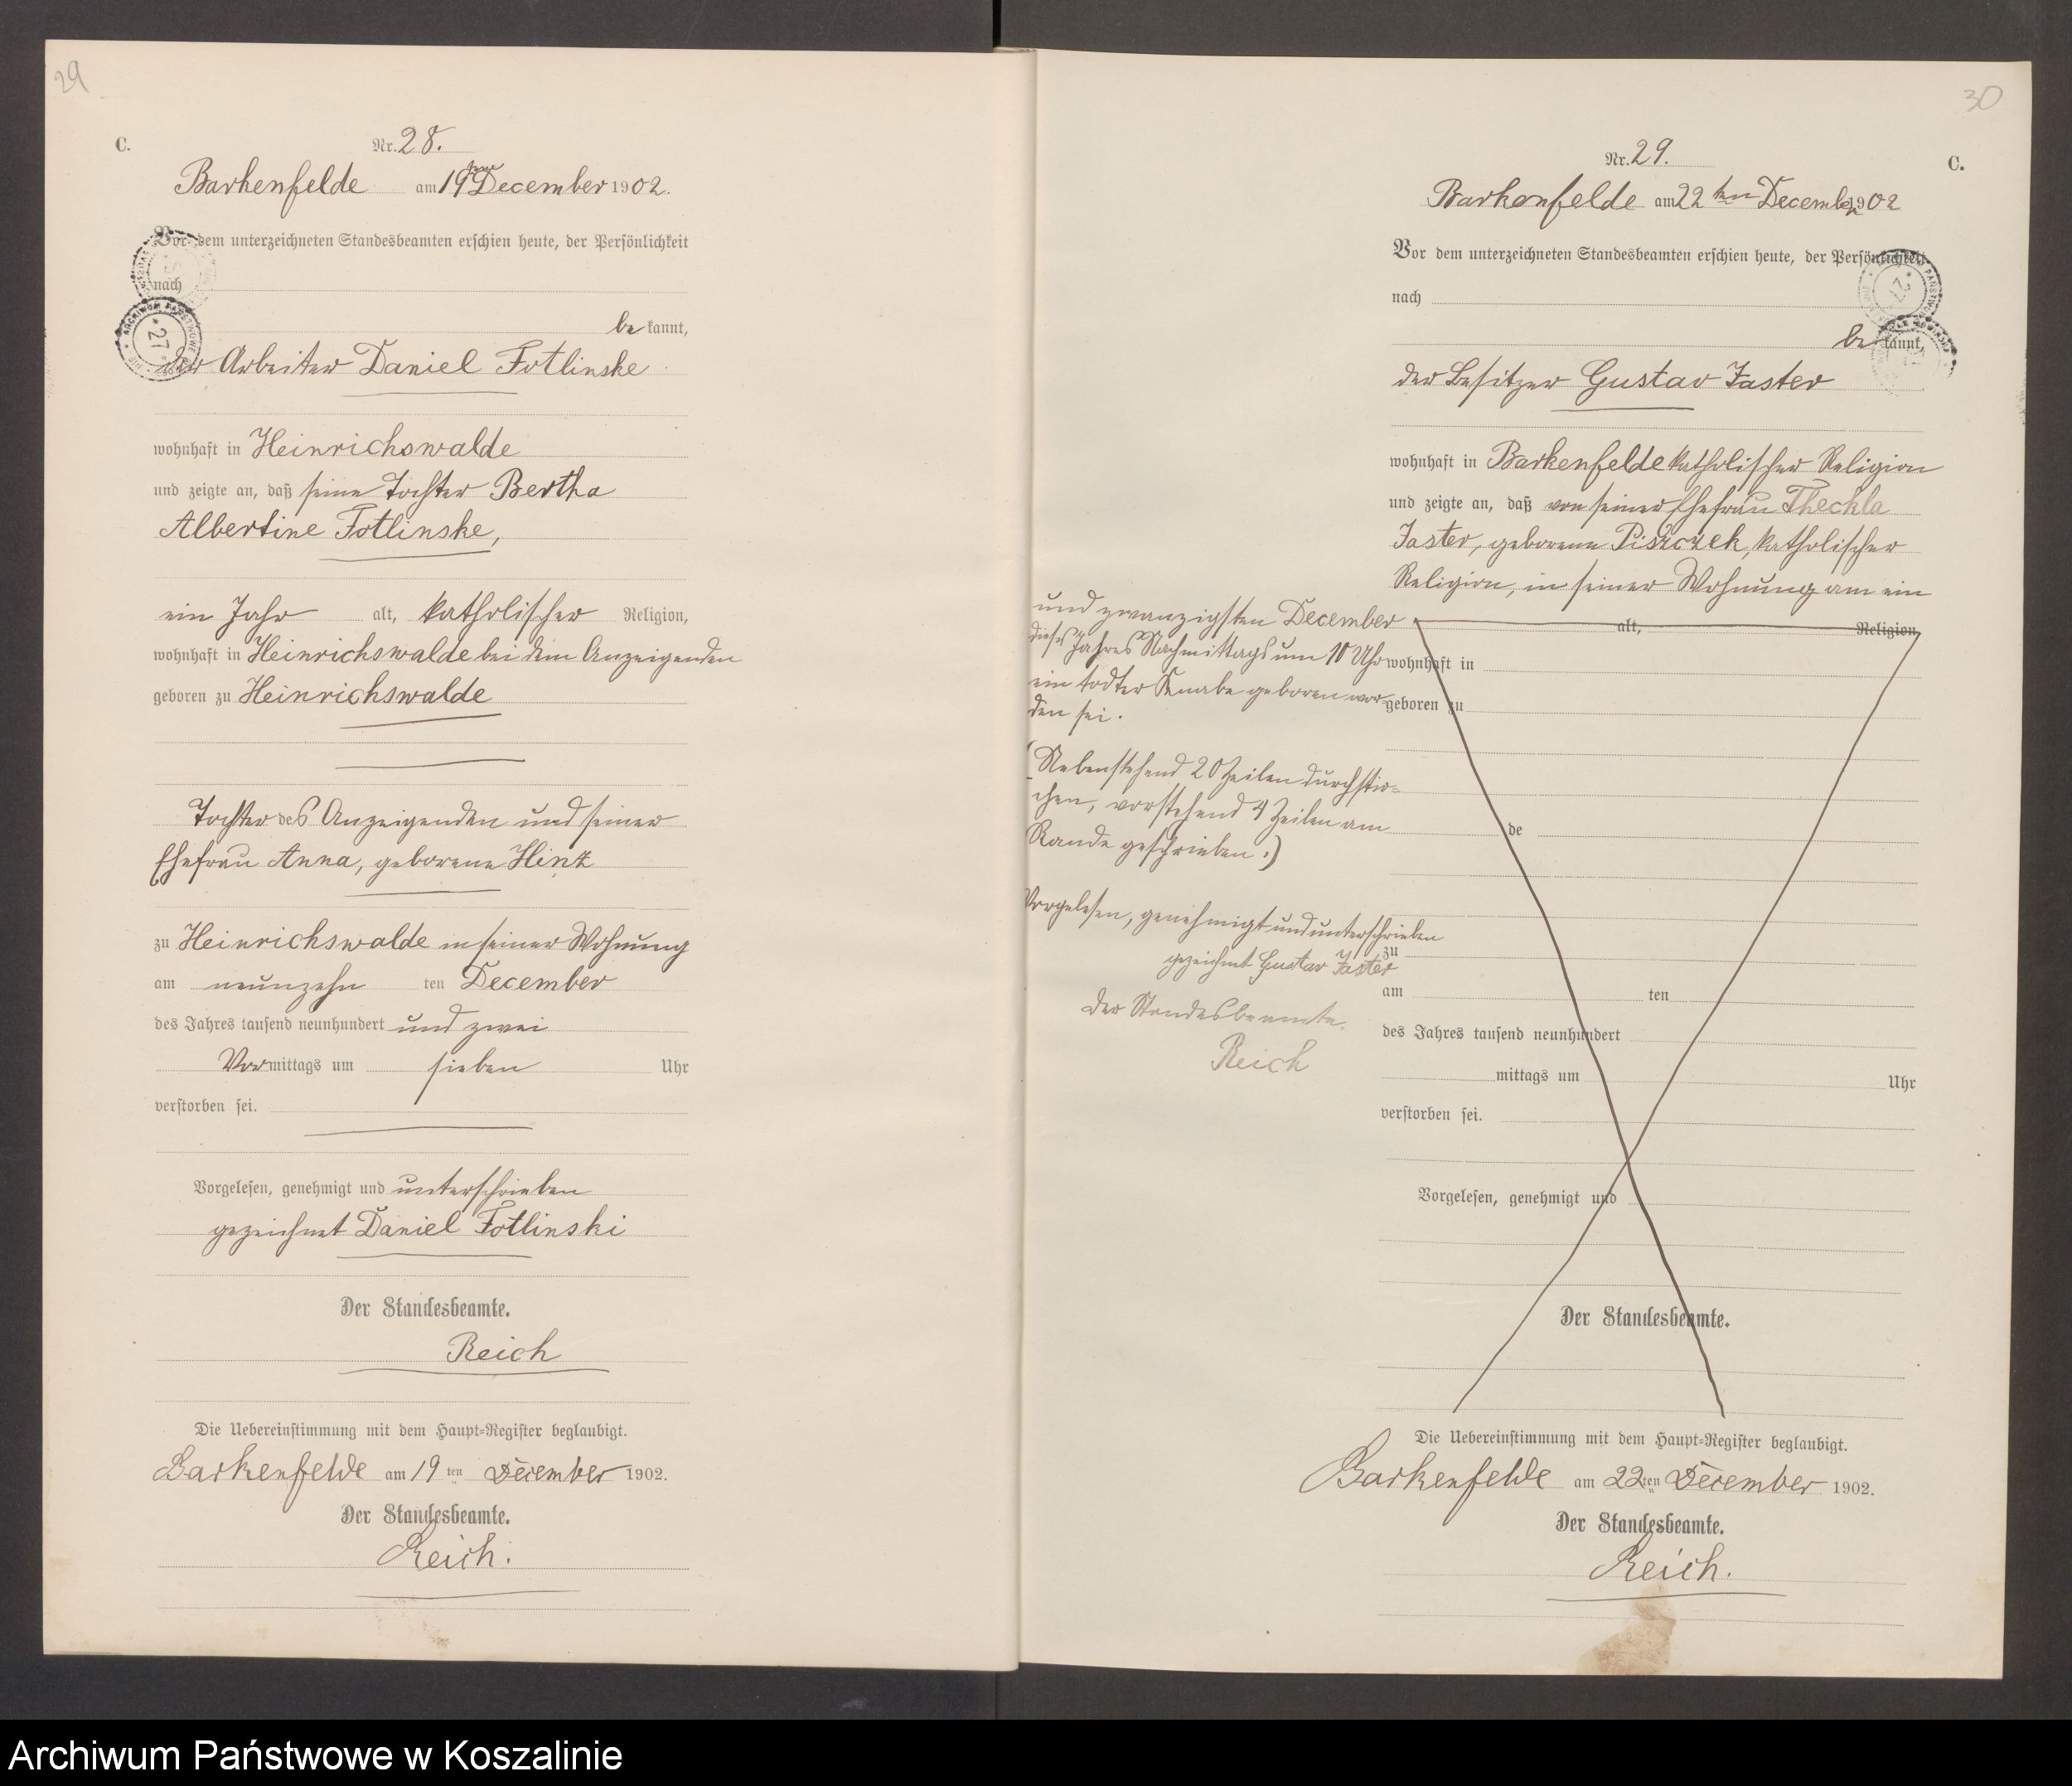 29
C.
Nr. 28.
Barkenfelde am 19ten December 1902.
Vor dem unterzeichneten Standesbeamten erschien heute, der Persönlichkeit
nach
be kannt,
der Arbeiter Daniel Fotlinske
wohnhaft in Heinrichswalde
und zeigte an, daß seine Tochter Bertha
Albertine Fotlinske,
ein Jahr alt, katholischer Religion,
wohnhaft in Heinrichswalde bei dem Anzeigenden
geboren zu Heinrichswalde
Tochter des Anzeigenden und seiner
Ehefrau Anna, geborene Hintz
zu Heinrichswalde in seiner Wohnung
am neunzehn ten December
des Jahres tausend neunhundert und zwei
Vor mittags um sieben Uhr
verstorben sei.
Vorgelesen, genehmigt und unterschrieben
gezeichnet Daniel Fotlinski
Der Standesbeamte.
Reich
Die Uebereinstimmung mit dem Haupt-Register beglaubigt.
Barkenfelde am 19ten December 1902.
Der Standesbeamte.
Reich.
30
Nr. 29.
C.
Barkenfelde am 22ten December 1902
Vor dem unterzeichneten Standesbeamten erschien heute, der Persönlichkeit
nach
be kannt,
der Besitzer Gustav Jaster
wohnhaft in Barkenfelde katholischer Religion
und zeigte an, daß von seiner Ehefrau Theckla
Jaster, geborene Piszczek, katholischer
Religion, in seiner Wohnung am ein
und zwanzigsten December
dieses Jahres Nachmittags um 10 Uhr
ein todter Knabe geboren wor-
den sei.
(Nebenstehend 20 Zeilen durchstri-
chen, vorstehend 4 Zeilen am
Rande geschrieben.)
Vorgelesen, genehmigt und unterschrieben
gezeichnet Gustav Jaster
Der Standesbeamte.
Reich
alt, Religion,
wohnhaft in
geboren zu
de
zu
am ten
des Jahres tausend neunhundert
mittags um Uhr
verstorben sei.
Vorgelesen, genehmigt und
Der Standesbeamte.
Die Uebereinstimmung mit dem Haupt-Register beglaubigt.
Barkenfelde am 22ten December 1902.
Der Standesbeamte.
Reich.
Archiwum Państwowe w Koszalinie